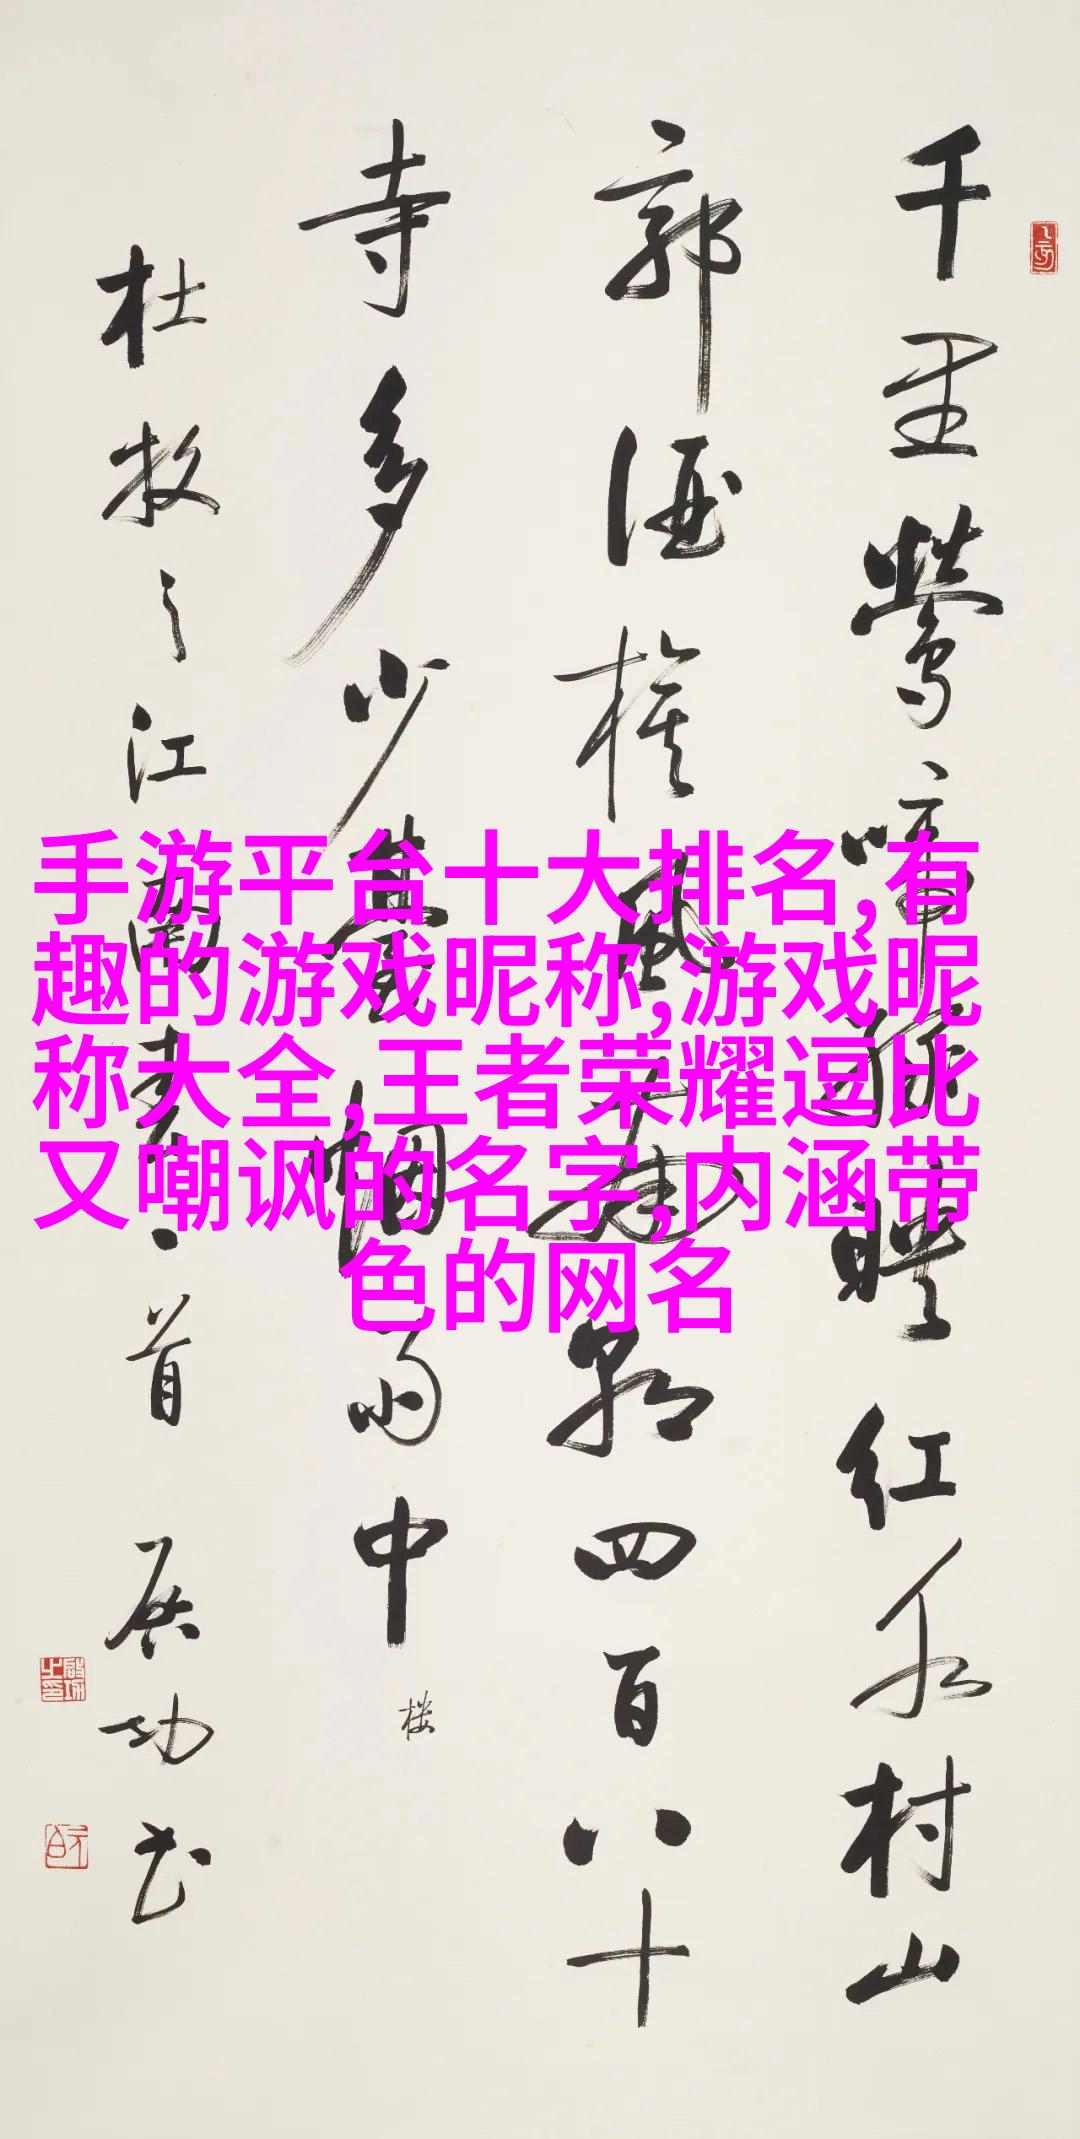 千里鶯啼緑暎红水村山
郭酒旗風南朝四百八十
寺多少臺烟雨中
楼
杜牧之江南春一首 启功书
手游平台十大排名,有
趣的游戏昵称,游戏昵
称大全,王者荣耀逗比
又嘲讽的名字,内涵带
色的网名